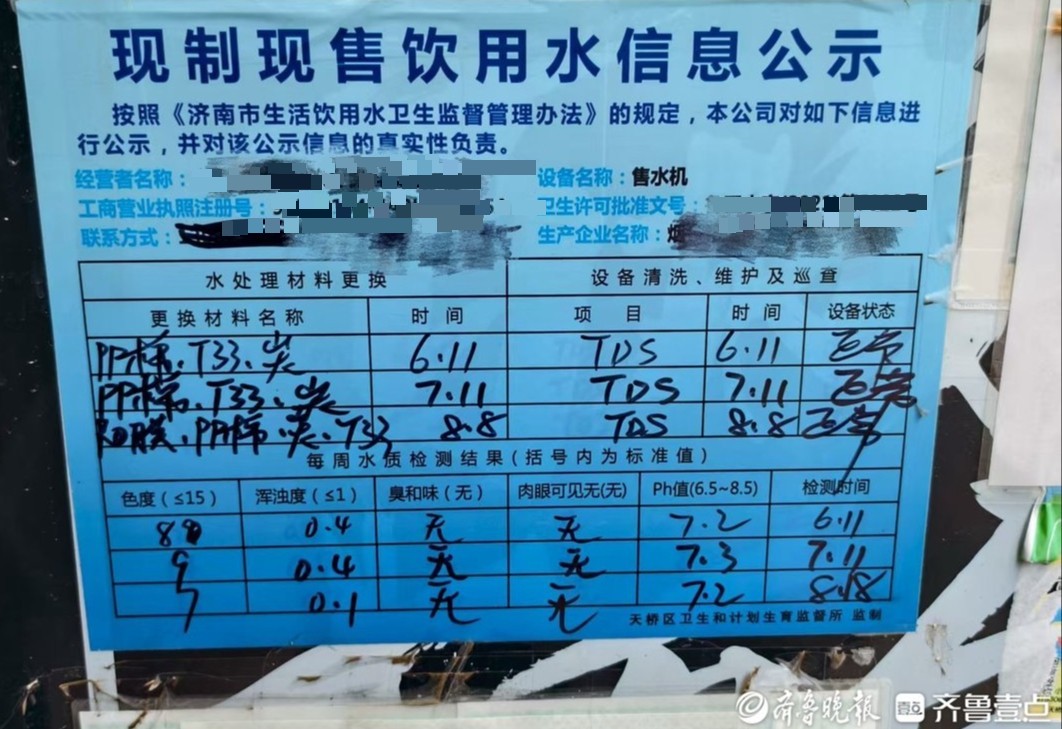 现制现售饮用水信息公示
按照《济南市生活饮用水卫生监督管理办法》的规定，本公司对如下信息进
行公示，并对该公示信息的真实性负责。
经营者名称： 设备名称：售水机
工商营业执照注册号： 卫生许可批准文号：
联系方式： 生产企业名称：烟
水处理材料更换 设备清洗、维护及巡查
更换材料名称 时间 项目 时间 设备状态
PP棉、T33、炭 6.11 TDS 6.11 正常
PP棉、T33、炭 7.11 TDS 7.11 正常
膜、PP棉、炭、T33 8.8 TDS 8.8 正常
每周水质检测结果（括号内为标准值）
色度（≤15） 浑浊度（≤1） 臭和味（无） 肉眼可见无(无) Ph值(6.5~8.5) 检测时间
8 0.4 无 无 7.2 6.11
9 0.4 无 无 7.3 7.11
7 0.1 无 无 7.2
天桥区卫生和计划生育监督所 监制
齐鲁晚报 壹点 齐鲁壹点